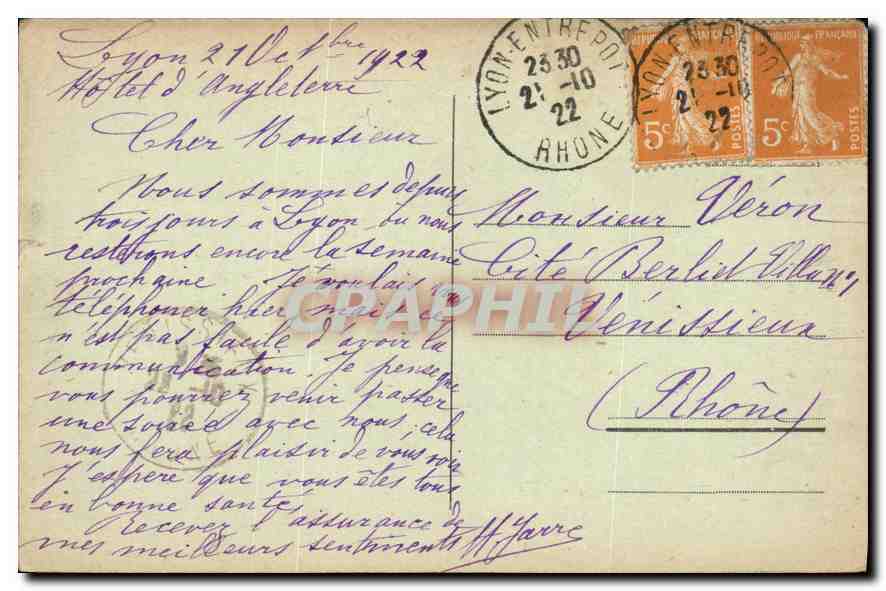 Lyon 21 Octbre 1922
Hôtel d'Angleterre
Cher Monsieur
Nous sommes depuis
trois jours à Lyon ou nous
resterons encore la semaine
prochaine Je voulais
téléphoner hier mais ce
n'est pas facile d'avoir la
communication. Je pense que
vous pourrez venir passer
une soirée avec nous, cela
nous fera plaisir de vous voir
J'espère que vous êtes tous
en bonne santé
Recevez l'assurance de
mes meilleurs sentiments
H. Jarre
LYON-ENTREPOT
23 30
21 -10
22
RHONE
LYON-ENTREPOT
23 30
21 -10
22
5c
POSTES
REPUBLIQUE FRANÇAISE
5c
POSTES
Monsieur Véron
Cité Berliet Villa n°1
Vénissieux
(Rhône)
CPAPHIL